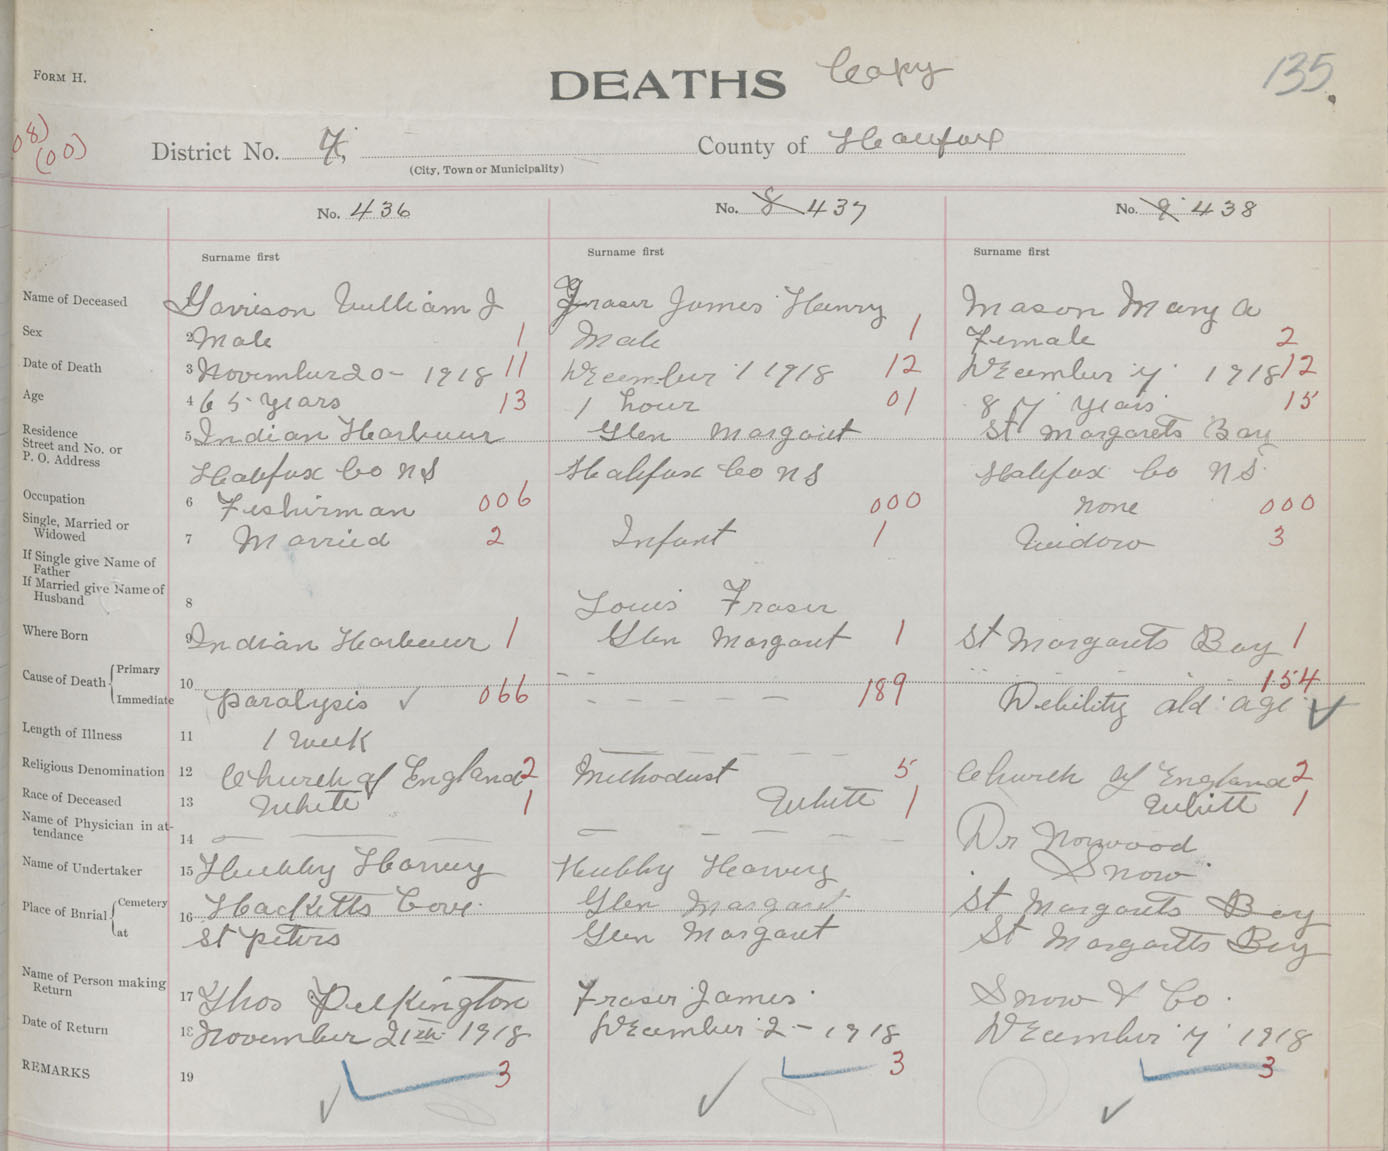 FORM H.
DEATHS Copy
135.
08)
(00)
District No. 7,
County of Halifax
(City, Town or Municipality)
No. 436
No. 8 437
No. 9 438
Surname first
Surname first
Surname first
Name of Deceased Garrison William J Fraser James Henry Mason Mary A
Sex 2 Male 1 Male 1 Female 2
Date of Death 3 November 20 - 1918 11 December 1 1918 12 December 7 1918 12
Age 4 65 years 13 1 hour 01 87 years 15
Residence
Street and No. or
P. O. Address
5 Indian Harbour Glen Margaret St Margarets Bay
Halifax Co N S Halifax Co N S Halifax Co N S
Occupation 6 Fisherman 006 000 none 000
Single, Married or
Widowed
7 Married 2 Infant 1 Widow 3
If Single give Name of
Father
If Married give Name of
Husband
8 Louis Fraser
Where Born 9 Indian Harbour 1 Glen Margaret 1 St Margarets Bay 1
Cause of Death Primary 10 154
Immediate paralysis ✓ 066 189 Debility old age ✓
Length of Illness 11 1 week
Religious Denomination 12 Church of England 2 Methodist 5 Church of England 2
Race of Deceased 13 White 1 White 1 White 1
Name of Physician in at-
tendance
14 Dr Norwood
Name of Undertaker 15 Hubby Harvey Hubby Harvey Snow
Place of Burial Cemetery 16 Hacketts Cove Glen Margaret St Margarets Bay
at St Peters Glen Margaret St Margaretts Bay
Name of Person making
Return
17 Thos Pelkington Fraser James Snow & Co.
Date of Return 18 November 21th 1918 December 2 - 1918 December 7 1918
REMARKS 19 3 3 3